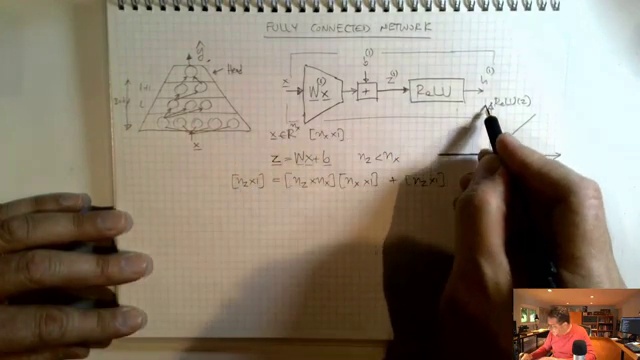 FULLY CONNECTED NETWORK
ŷ
Head
L
x
x W⁽¹⁾x + b⁽¹⁾ z⁽¹⁾ ReLU h⁽¹⁾
ReLU(z)
x ∈ ℝ [n_x x 1]
z = Wx + b n_z < n_x
[n_z x 1] = [n_z x n_x] [n_x x 1] + [n_z x 1]